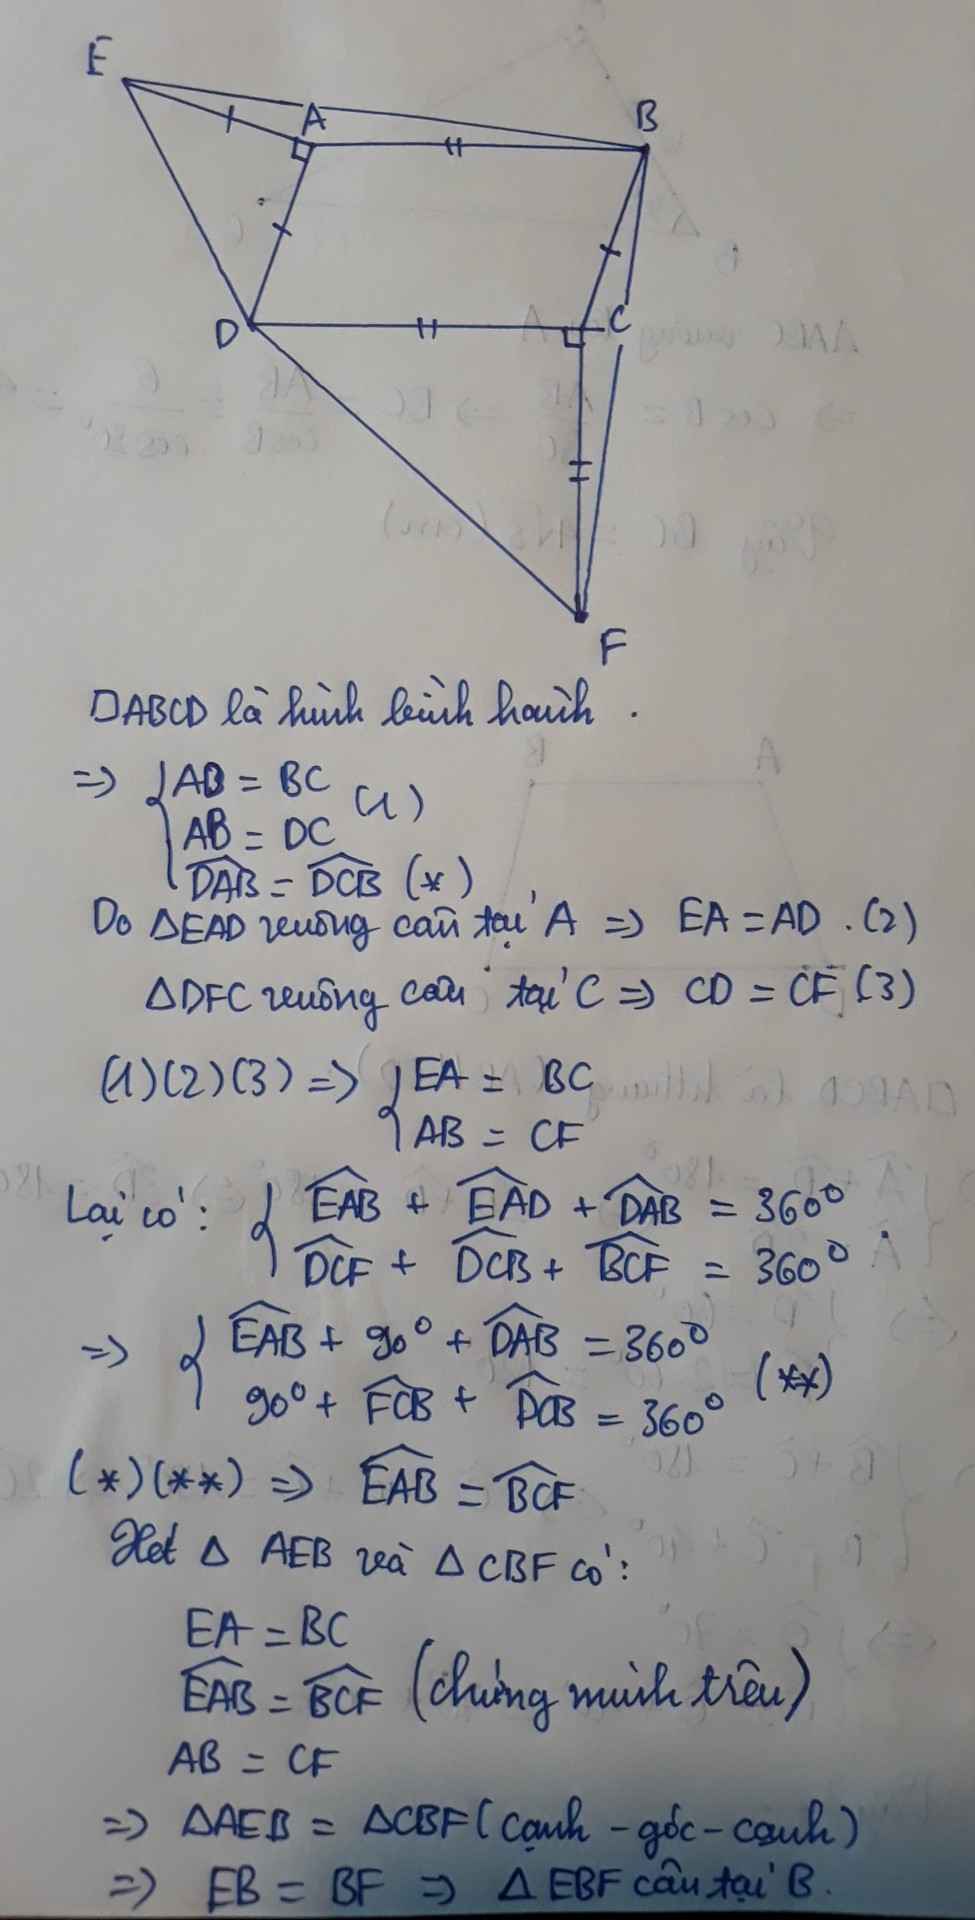 E
A
B
D
C
F
□ABCD là hình bình hành.
=> { AD = BC (1)
AB = DC
DAB = DCB (*)
Do ΔEAD vuông cân tại A => EA = AD. (2)
ΔDFC vuông cân tại C => CD = CF (3)
(1)(2)(3) => { EA = BC
AB = CF
Lại có: { EAB + EAD + DAB = 360°
DCF + DCB + BCF = 360°
=> { EAB + 90° + DAB = 360°
90° + FCB + DCB = 360° (**)
(*)(**) => EAB = BCF
Xet Δ AEB và Δ CBF có:
EA = BC
EAB = BCF (chứng minh trên)
AB = CF
=> ΔAEB = ΔCBF (cạnh - góc - cạnh)
=> EB = BF => ΔEBF cân tại B.